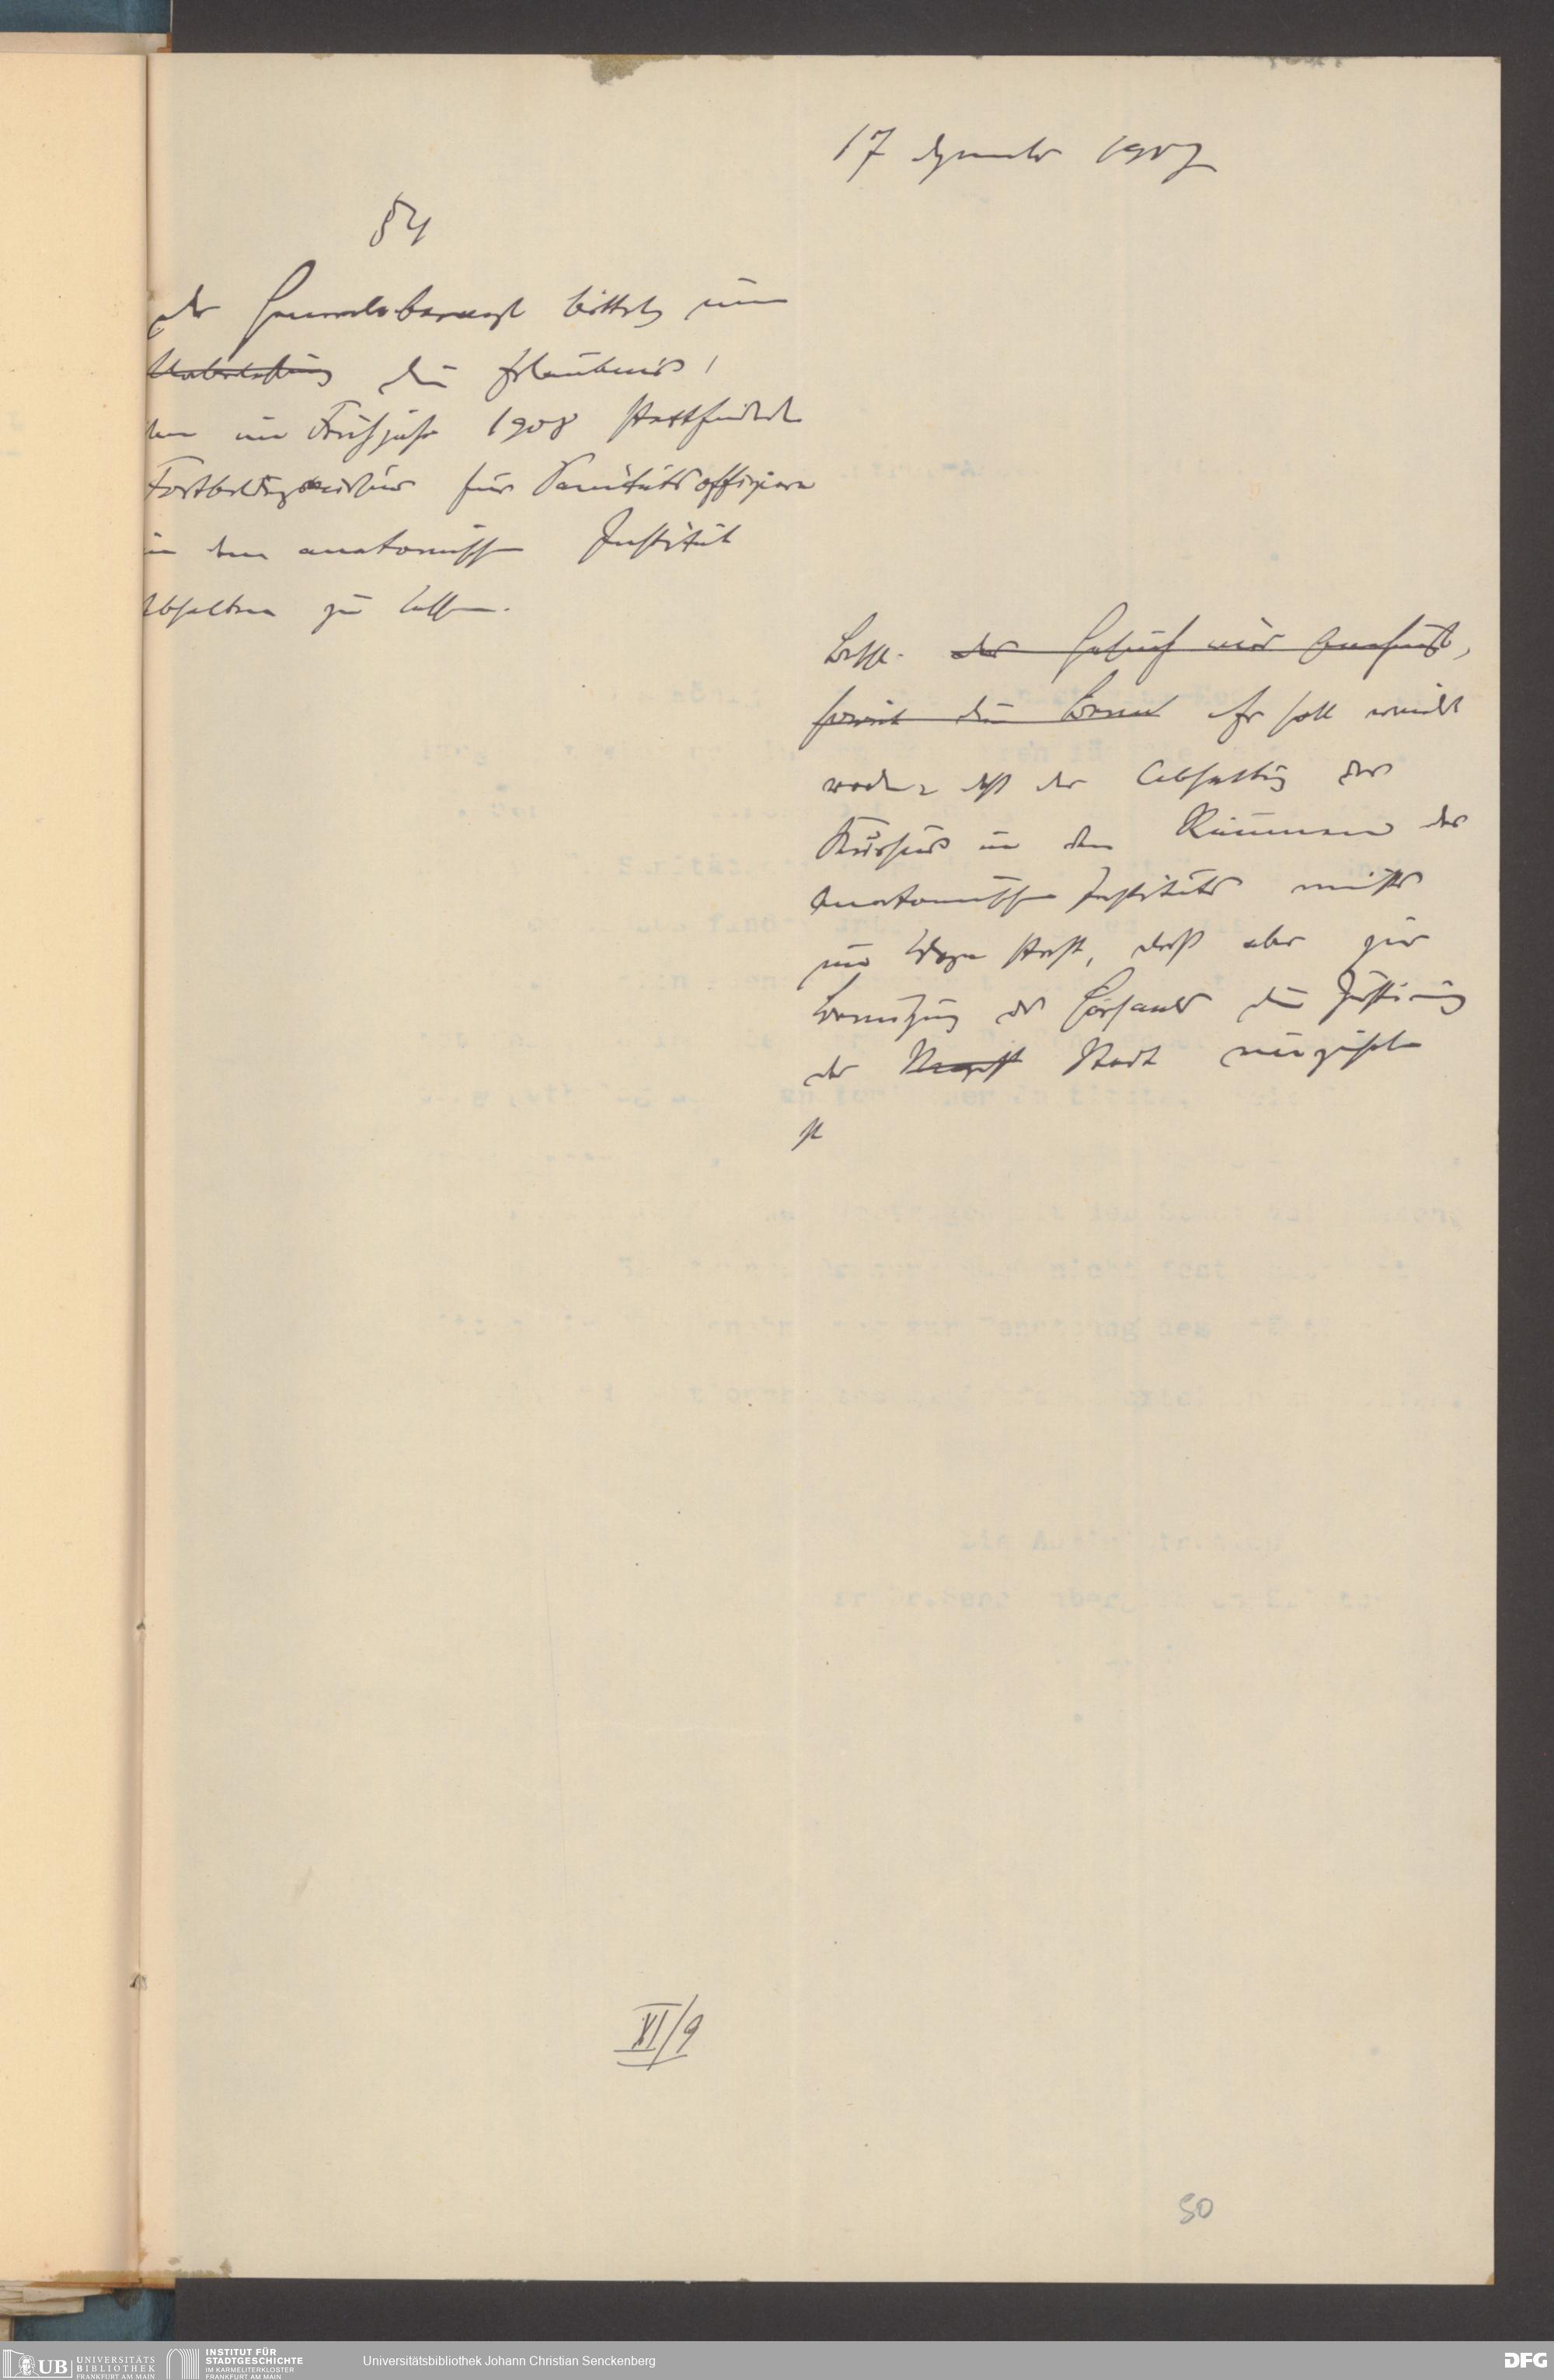 17 Dezember 1907
84
Der Generaloberarzt bittet um
Ueberlassung die Erlaubnis,
den im Frühjahr 1908 stattfindend
Fortbildungskursus für Sanitätsoffiziere
in dem anatomischen Institut
abhalten zu lassen.
Beschl. Der Gesuch wird genehmigt,
soweit die Es soll erwidert
werden daß der Abhaltung des
Kursus in den Räumen des
Anatomischen Instituts nichts
im Wege steht, daß aber zur
Benutzung des Hörsaals die Zustimmung
der Stadt einzuholen
ist
XI/9
50
UB UNIVERSITÄTS
BIBLIOTHEK
FRANKFURT AM MAIN
INSTITUT FÜR
STADTGESCHICHTE
IM KARMELITERKLOSTER
FRANKFURT AM MAIN
Universitätsbibliothek Johann Christian Senckenberg
DFG